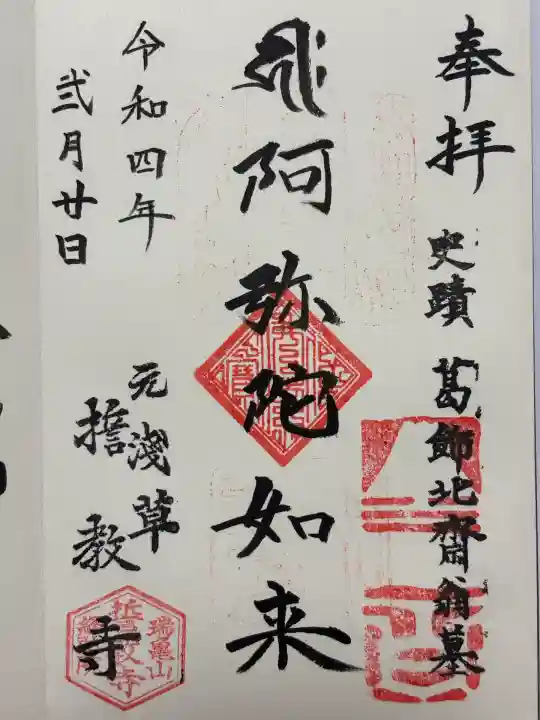 奉拝
史蹟 葛飾北齋翁墓
阿弥陀如来
令和四年
弐月廿日
元浅草
誓教寺
瑞亀山